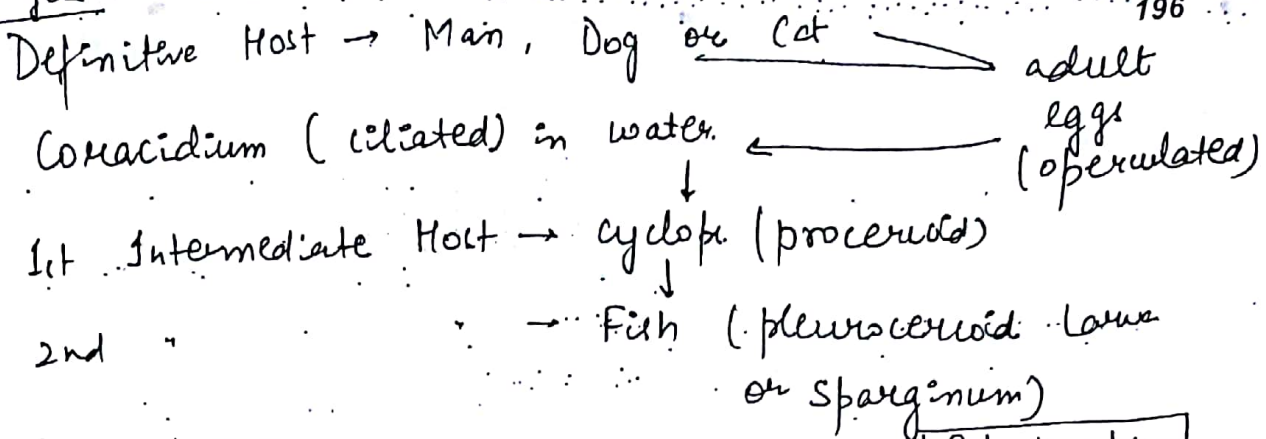 196
Definitive Host → Man, Dog or Cat
adult
eggs
(operculated)
Coracidium (ciliated) in water.
↓
1st Intermediate Host → cyclops (procercoid)
↓
2nd " " → Fish (plerocercoid Larva
or Sparginum)